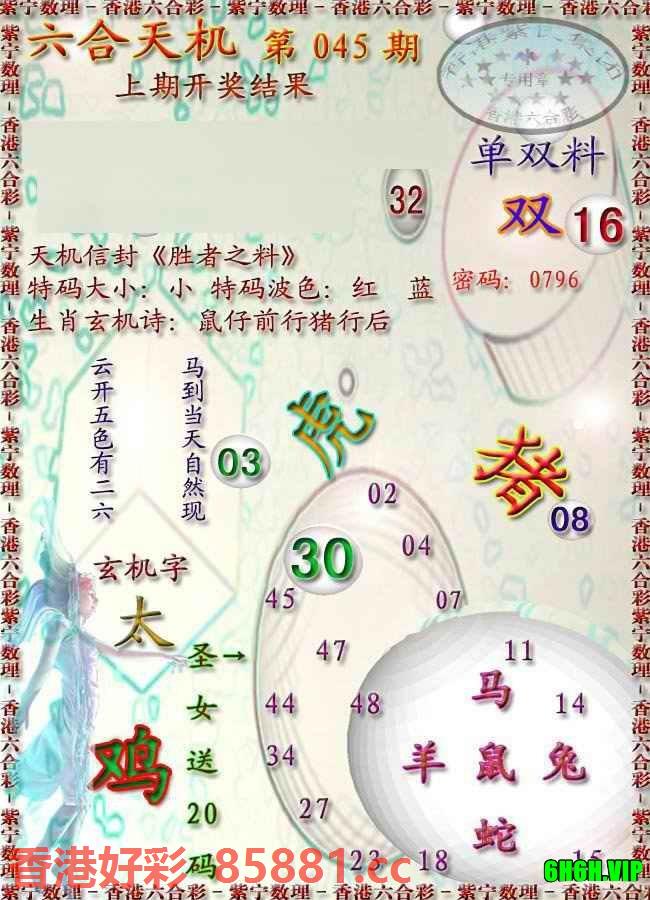 紫宁数理－香港六合彩－紫宁数理－香港六合彩－紫宁数理－香港六合彩
六合天机 第 045 期
上期开奖结果
专用章
香港六合彩
32
单双料
双 16
天机信封《胜者之料》
特码大小：小 特码波色：红 蓝
密码：0796
生肖玄机诗：鼠仔前行猪行后
云开五色有二六
马到当天自然现
03
虎
猪
08
02
30
04
45
07
玄机字
太
圣→
女
送
20
码
鸡
47
11
马
44
48
14
34
羊 鼠 兔
27
蛇
23
18
15
香港好彩 85881.cc
6H6H.VIP
紫宁数理－香港六合彩－紫宁数理－香港六合彩－紫宁数理－香港六合彩